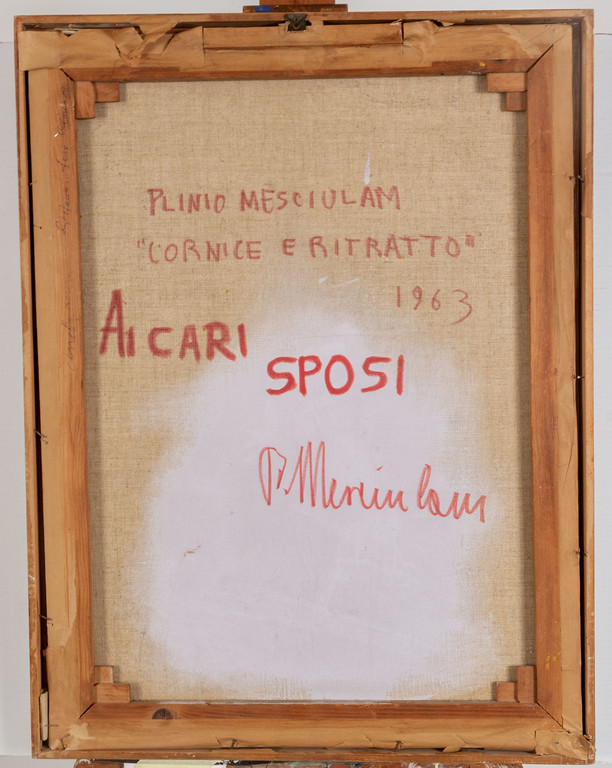 PLINIO MESCIULAM
"CORNICE E RITRATTO"
1963
AI CARI
SPOSI
P. Mesciulam